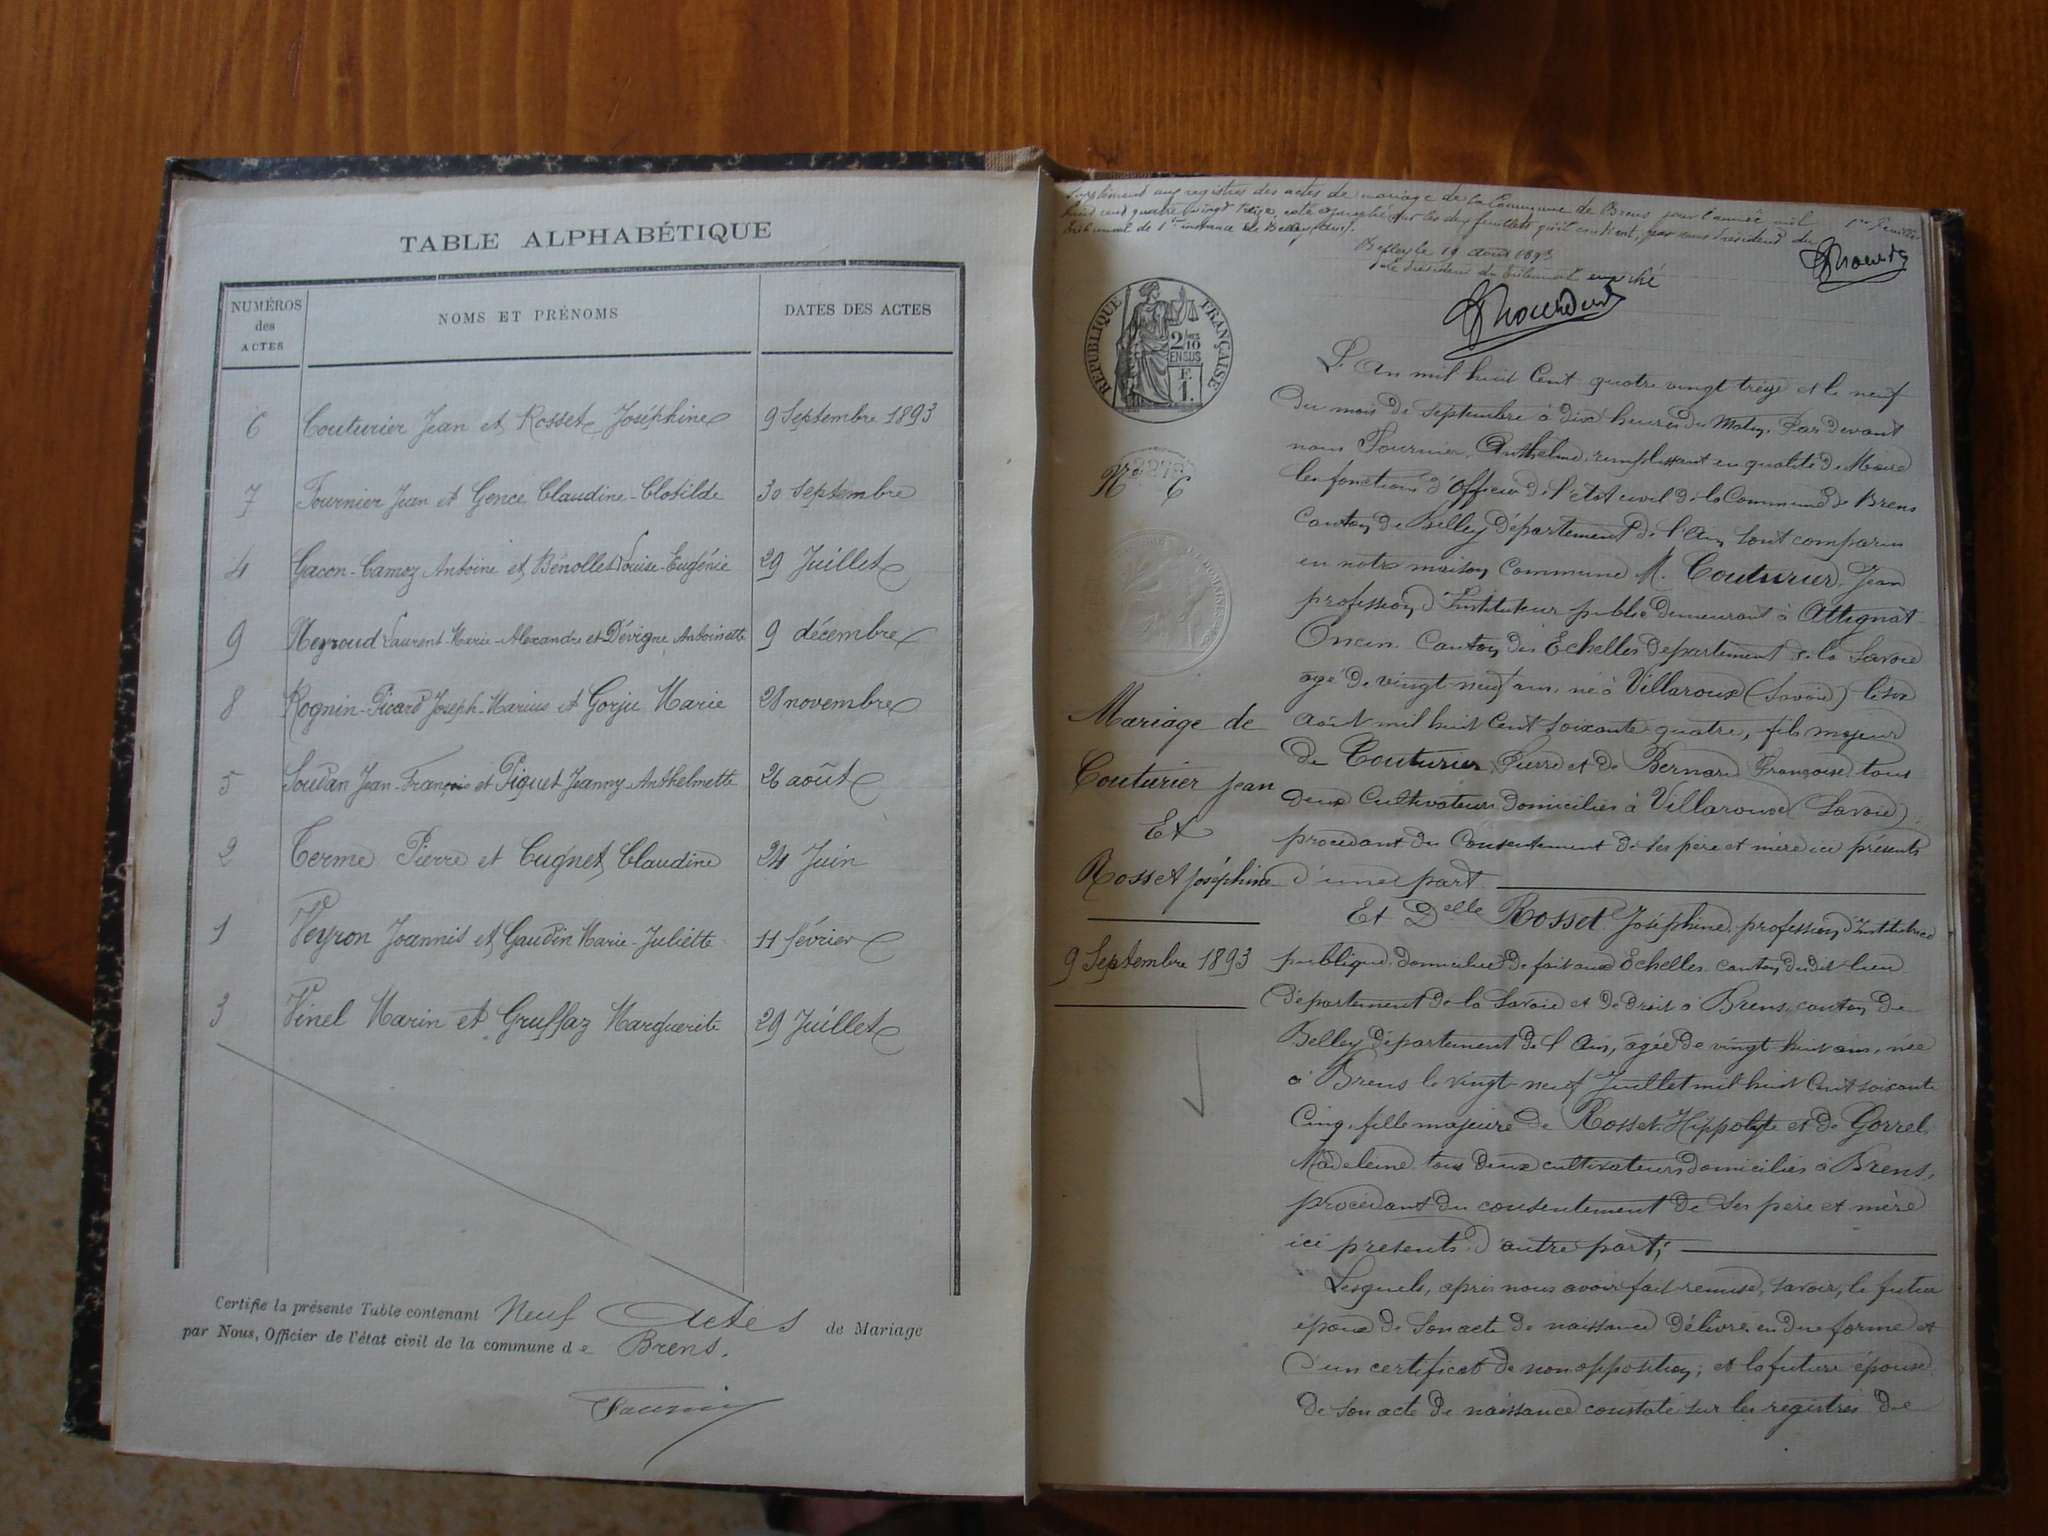 TABLE ALPHABÉTIQUE
NUMÉROS des ACTES
NOMS ET PRÉNOMS
DATES DES ACTES
6 Couturier Jean et Rosset Joséphine 9 Septembre 1893
7 Fournier Jean et Gence Claudine-Clotilde 30 Septembre
4 Gacon-Camoz Antoine et Bénollet Louise-Eugénie 29 Juillet
9 Meyroud Laurent-Marie-Alexandre et Dévigne Antoinette 9 décembre
8 Rognin-Picard Joseph-Marius et Gorju Marie 28 novembre
5 Soudan Jean-François et Piguet Jeanny-Anthelmette 26 août
2 Terme Pierre et Cugnet Claudine 24 Juin
1 Veyron Joannis et Gaudin Marie-Juliette 11 février
3 Vinel Marin et Gruffaz Marguerite 29 Juillet
Certifie la présente Table contenant Neuf Actes de Mariage
par Nous, Officier de l'état civil de la commune de Brens.
Supplément aux registres des actes de mariage de la Commune de Brens pour l'année mil
huit cent quatre vingt treize, coté et paraphé sur les feuillets qu'il contient, par nous Président du
tribunal de 1re instance de Belley (Ain).
1er feuillet
Belley le 19 Août 1893
Le Président du tribunal empêché
RÉPUBLIQUE FRANÇAISE
2/10 EN SUS
F. 1.
No 6
L'An mil huit Cent quatre vingt treize et le neuf
du mois de Septembre à dix heures du Matin. Par devant
nous Fournier, Anthelme, remplissant en qualité de Maire
les fonctions d'Officier de l'état civil de la Commune de Brens
Canton de Belley département de l'Ain, sont comparus
en notre maison Commune M. Couturier, Jean
profession d'Instituteur public demeurant à Attignat
Oncin Canton des Echelles département de la Savoie
agé de vingt-neuf ans, né à Villaroux (Savoie) le six
Août mil huit Cent Soixante quatre, fils majeur
de Couturier Pierre et de Bernard Françoise tous
deux Cultivateurs domiciliés à Villaroux (Savoie)
procédant du Consentement de ses père et mère ici présents
d'une part
Mariage de
Couturier Jean
Et
Rosset Joséphine
9 Septembre 1893
Et Delle Rosset Joséphine profession d'Institutrice
publique, domiciliée de fait aux Echelles canton dudit lieu
département de la Savoie et de droit à Brens, canton de
Belley département de l'Ain, agée de vingt-huit ans, née
à Brens le vingt-neuf Juillet mil huit Cent soixante
Cinq, fille majeure de Rosset Hippolyte et de Gorrel
Madeleine tous deux cultivateurs domiciliés à Brens,
procédant du consentement de ses père et mère
ici présents d'autre part;
Lesquels, après nous avoir fait remise, savoir, le futur
époux de son acte de naissance délivré en due forme et
d'un certificat de non opposition; et la future épouse
de son acte de naissance constaté sur les registres de